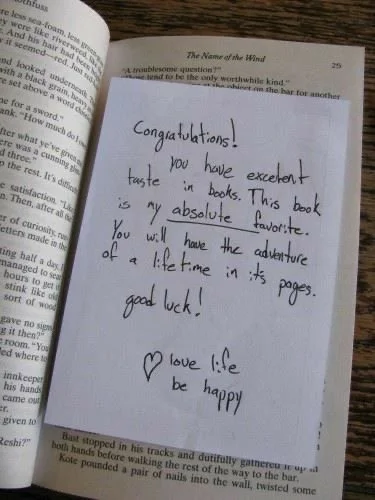 othfuss
re less sea-foam, less gr
y were like riverweed, li
. And his hair had been
it seemed—red. Just
nd looked underneath
with a black grain, heavy
re set above a word
me for a sword."
ank. "How much do
fter what ye've given
was a cunning
d three."
p the rest. It's difficu
e satisfaction.
n. Then, after all the
r of curiosity,
etters made in the
ting half a day,
managed to
hours to get
stink like
sort of wood
gave no sign
g it then?"
e room. "You
led where to
innkeeper
his hands
came out
er.
given to
Reshi?"
The Name of the Wind 29
"A troublesome question?"
tend to be the only worthwhile kind."
at the object on the bar for another
Congratulations!
you have excelent
taste in books. This book
is my absolute favorite.
You will have the adventure
of a lifetime in its pages.
good luck!
♡ love life
be happy
Bast stopped in his tracks and dutifully gathered it up in
both hands before walking the rest of the way to the bar.
Kote pounded a pair of nails into the wall, twisted some